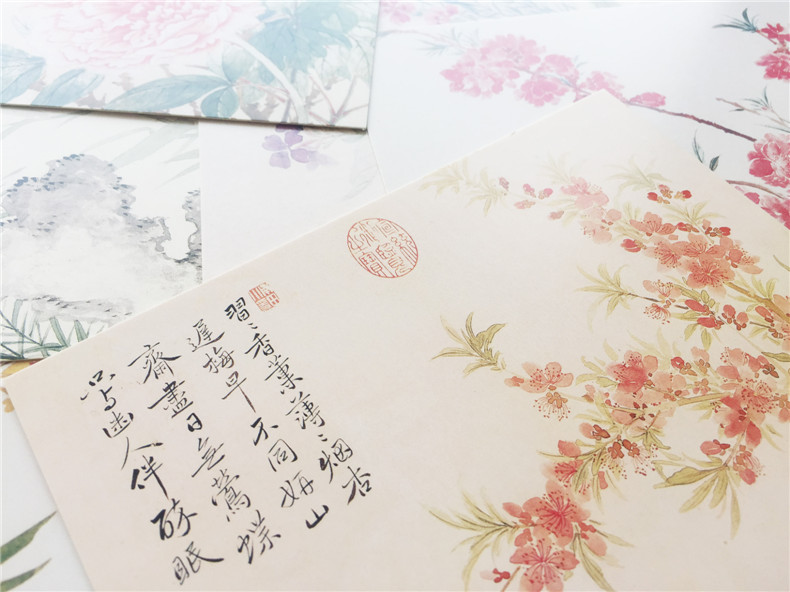 習〻香薰薄〻烟杏
遲梅早不同妍山
齋盡日無鶯蝶
只与幽人伴醉眠